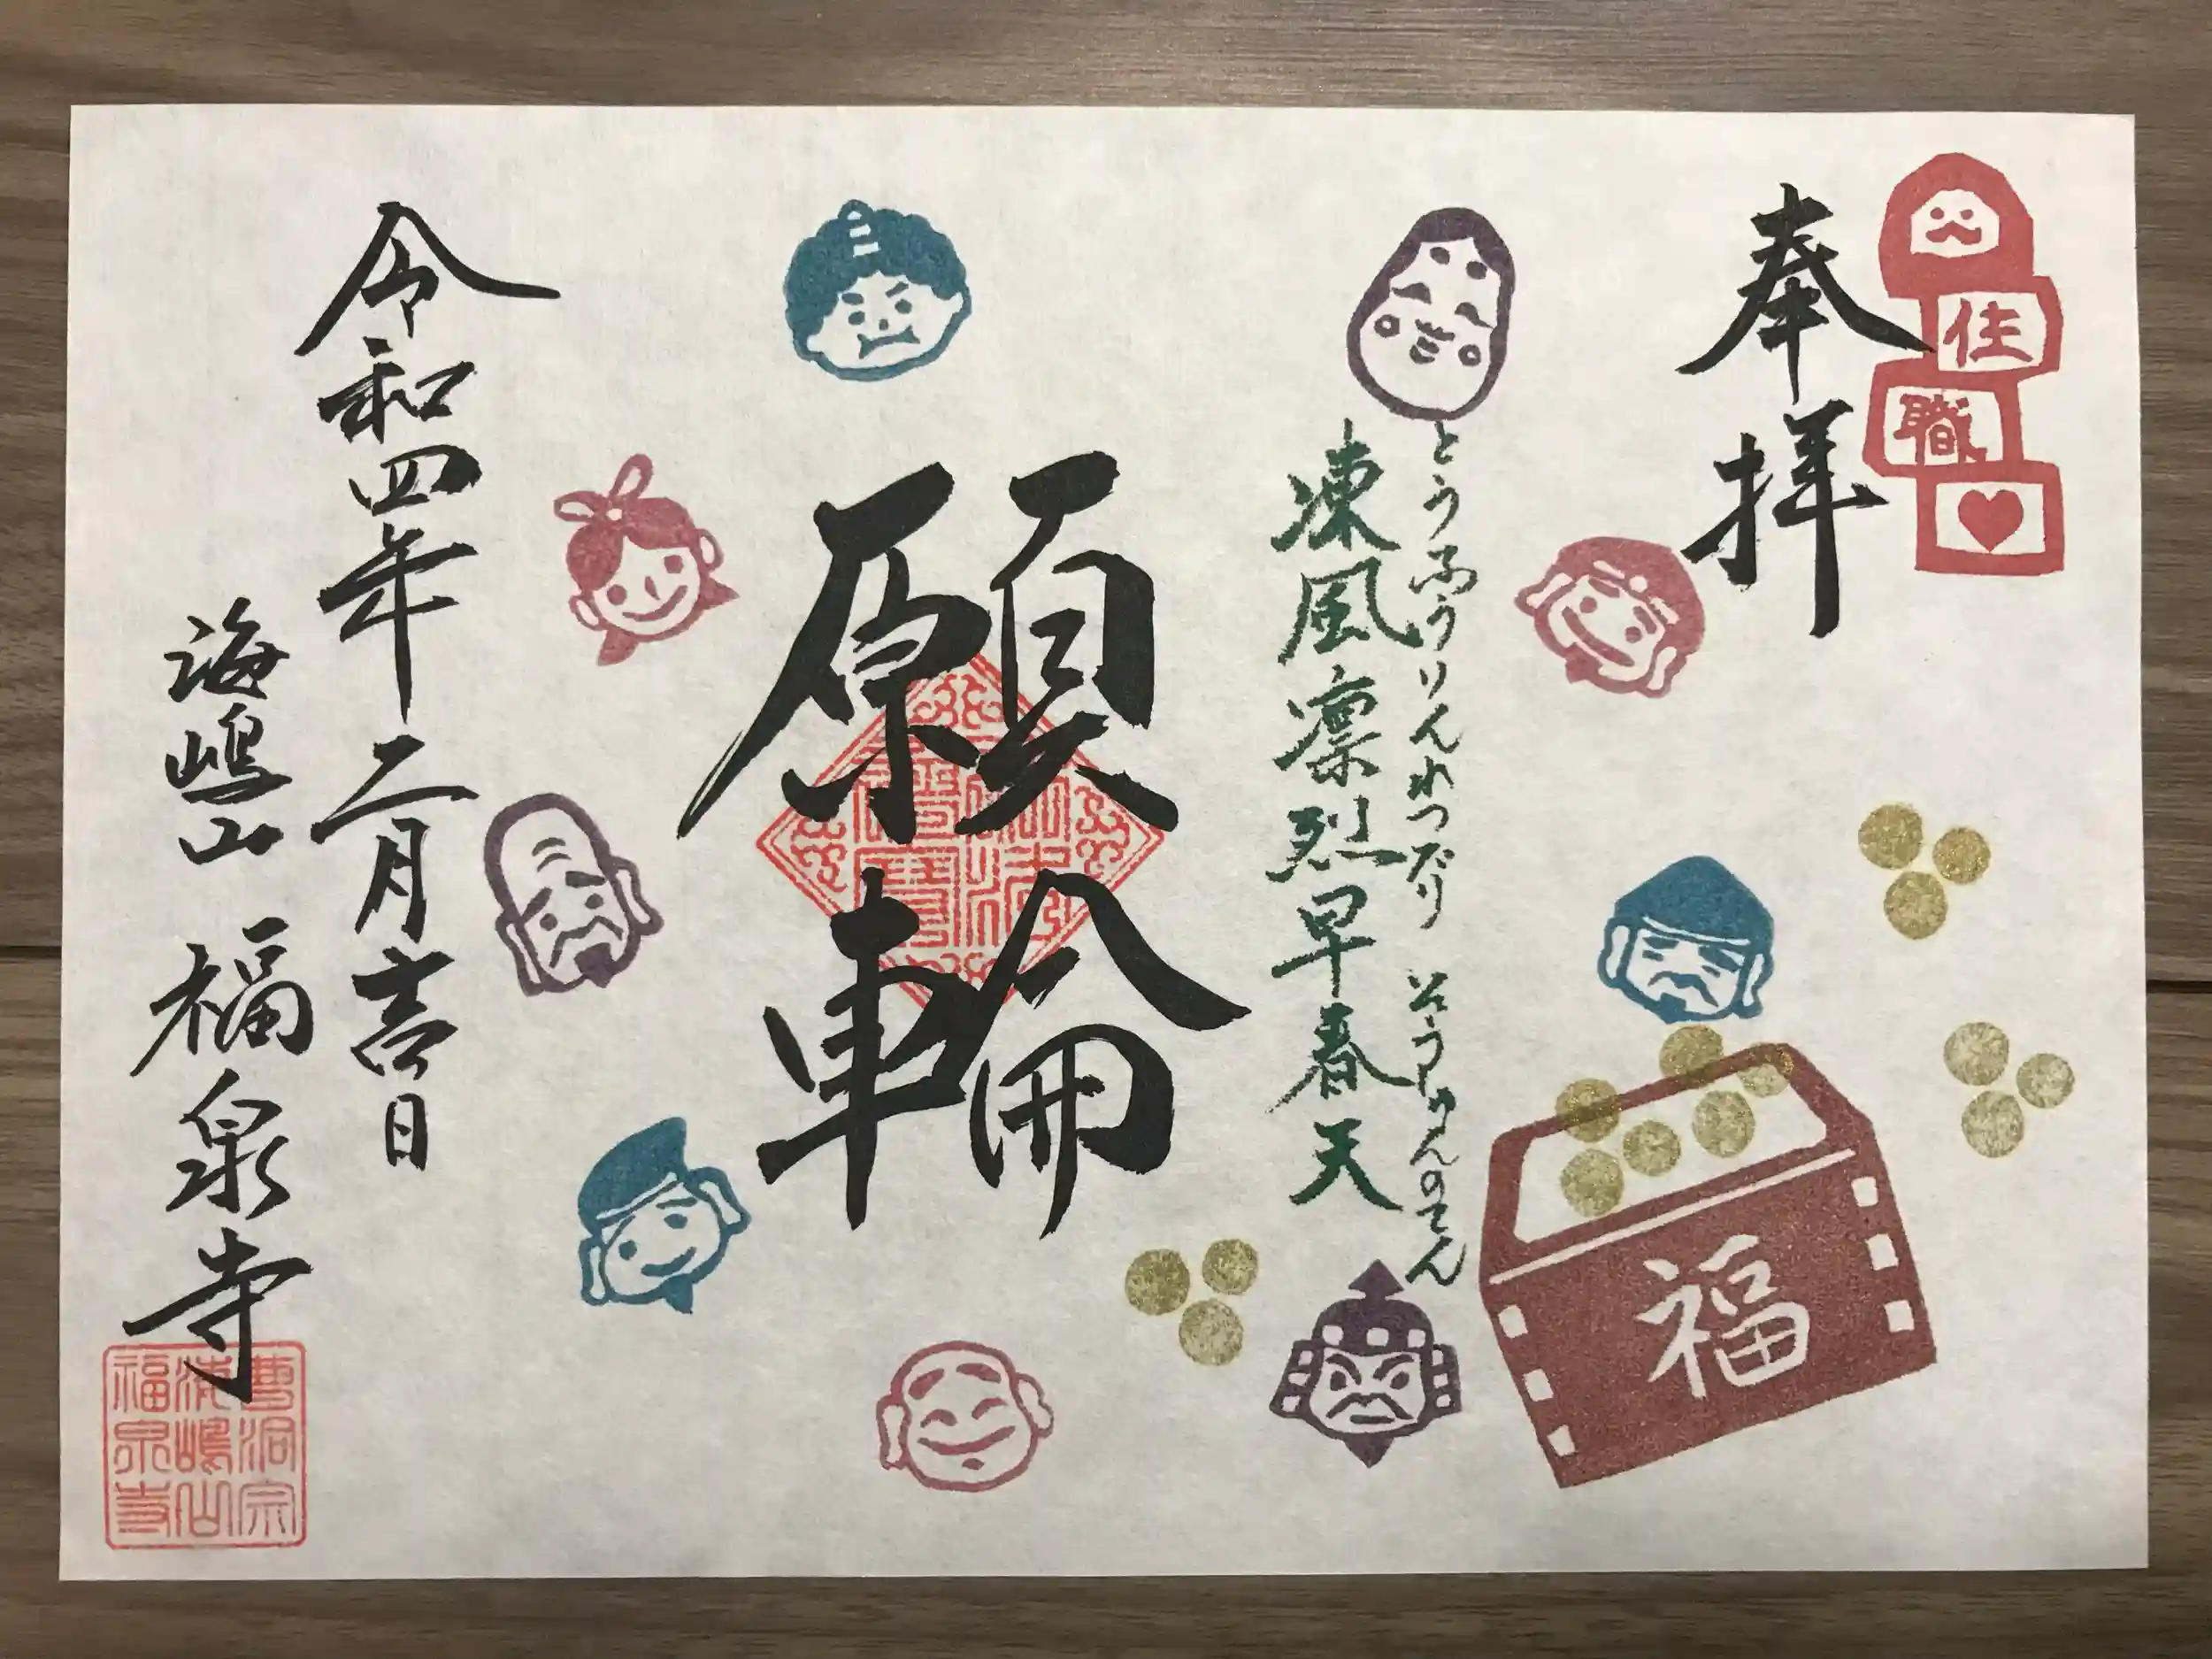 住職
奉拝
とうふうりんれつたり そうしゅんのてん
凍風凛烈早春天
福
願輪
令和四年二月吉日
海嶋山 福泉寺
曹洞宗
海嶋山
福泉寺